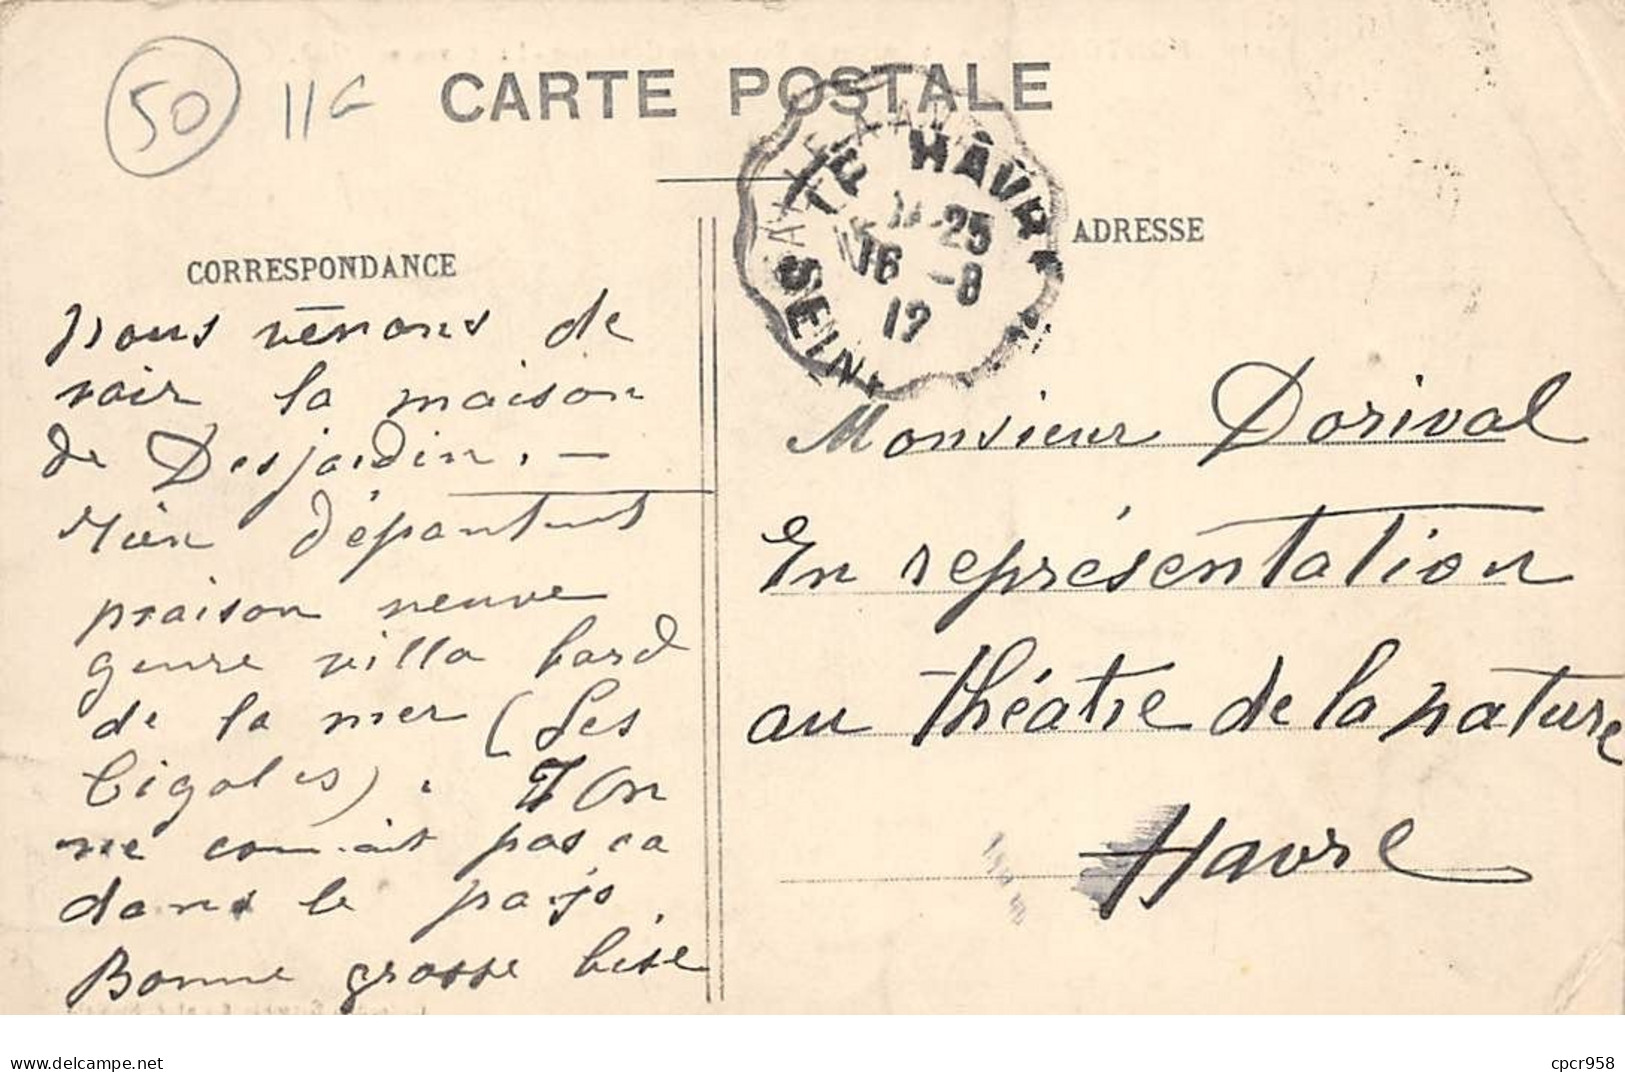 50 11G
CARTE POSTALE
LE HAVRE
25
16 -8
12
SEINE
CORRESPONDANCE
ADRESSE
Nous venons de
voir la maison
de Desjardin. —
Rien d'épantant
maison neuve
genre villa bord
de la mer (Les
Cigales). On
ne connait pas ca
dans le pays.
Bonne grosse bise
Monsieur Dorival
En représentation
au théatre de la nature
Havre
www.delcampe.net
cpcr958